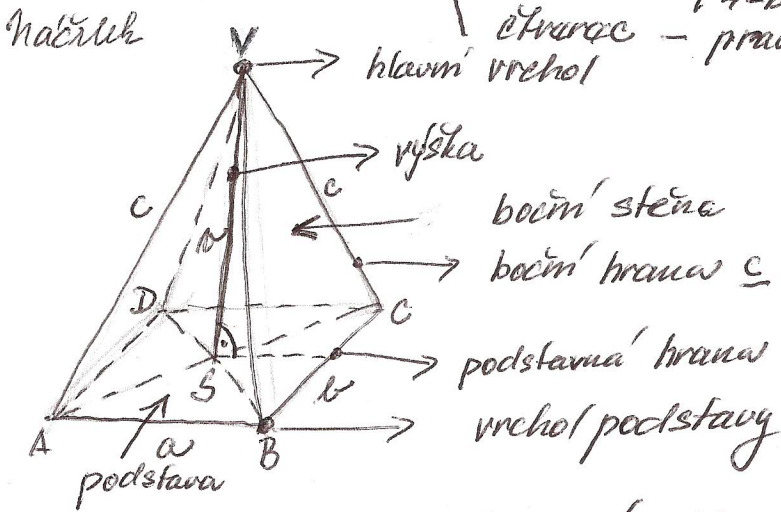 Náčrtek
čtverec –
V
hlavní vrchol
výška
c
c
v
boční stěna
boční hrana c
D
C
S
podstavná hrana
b
vrchol podstavy
A
a
B
podstava